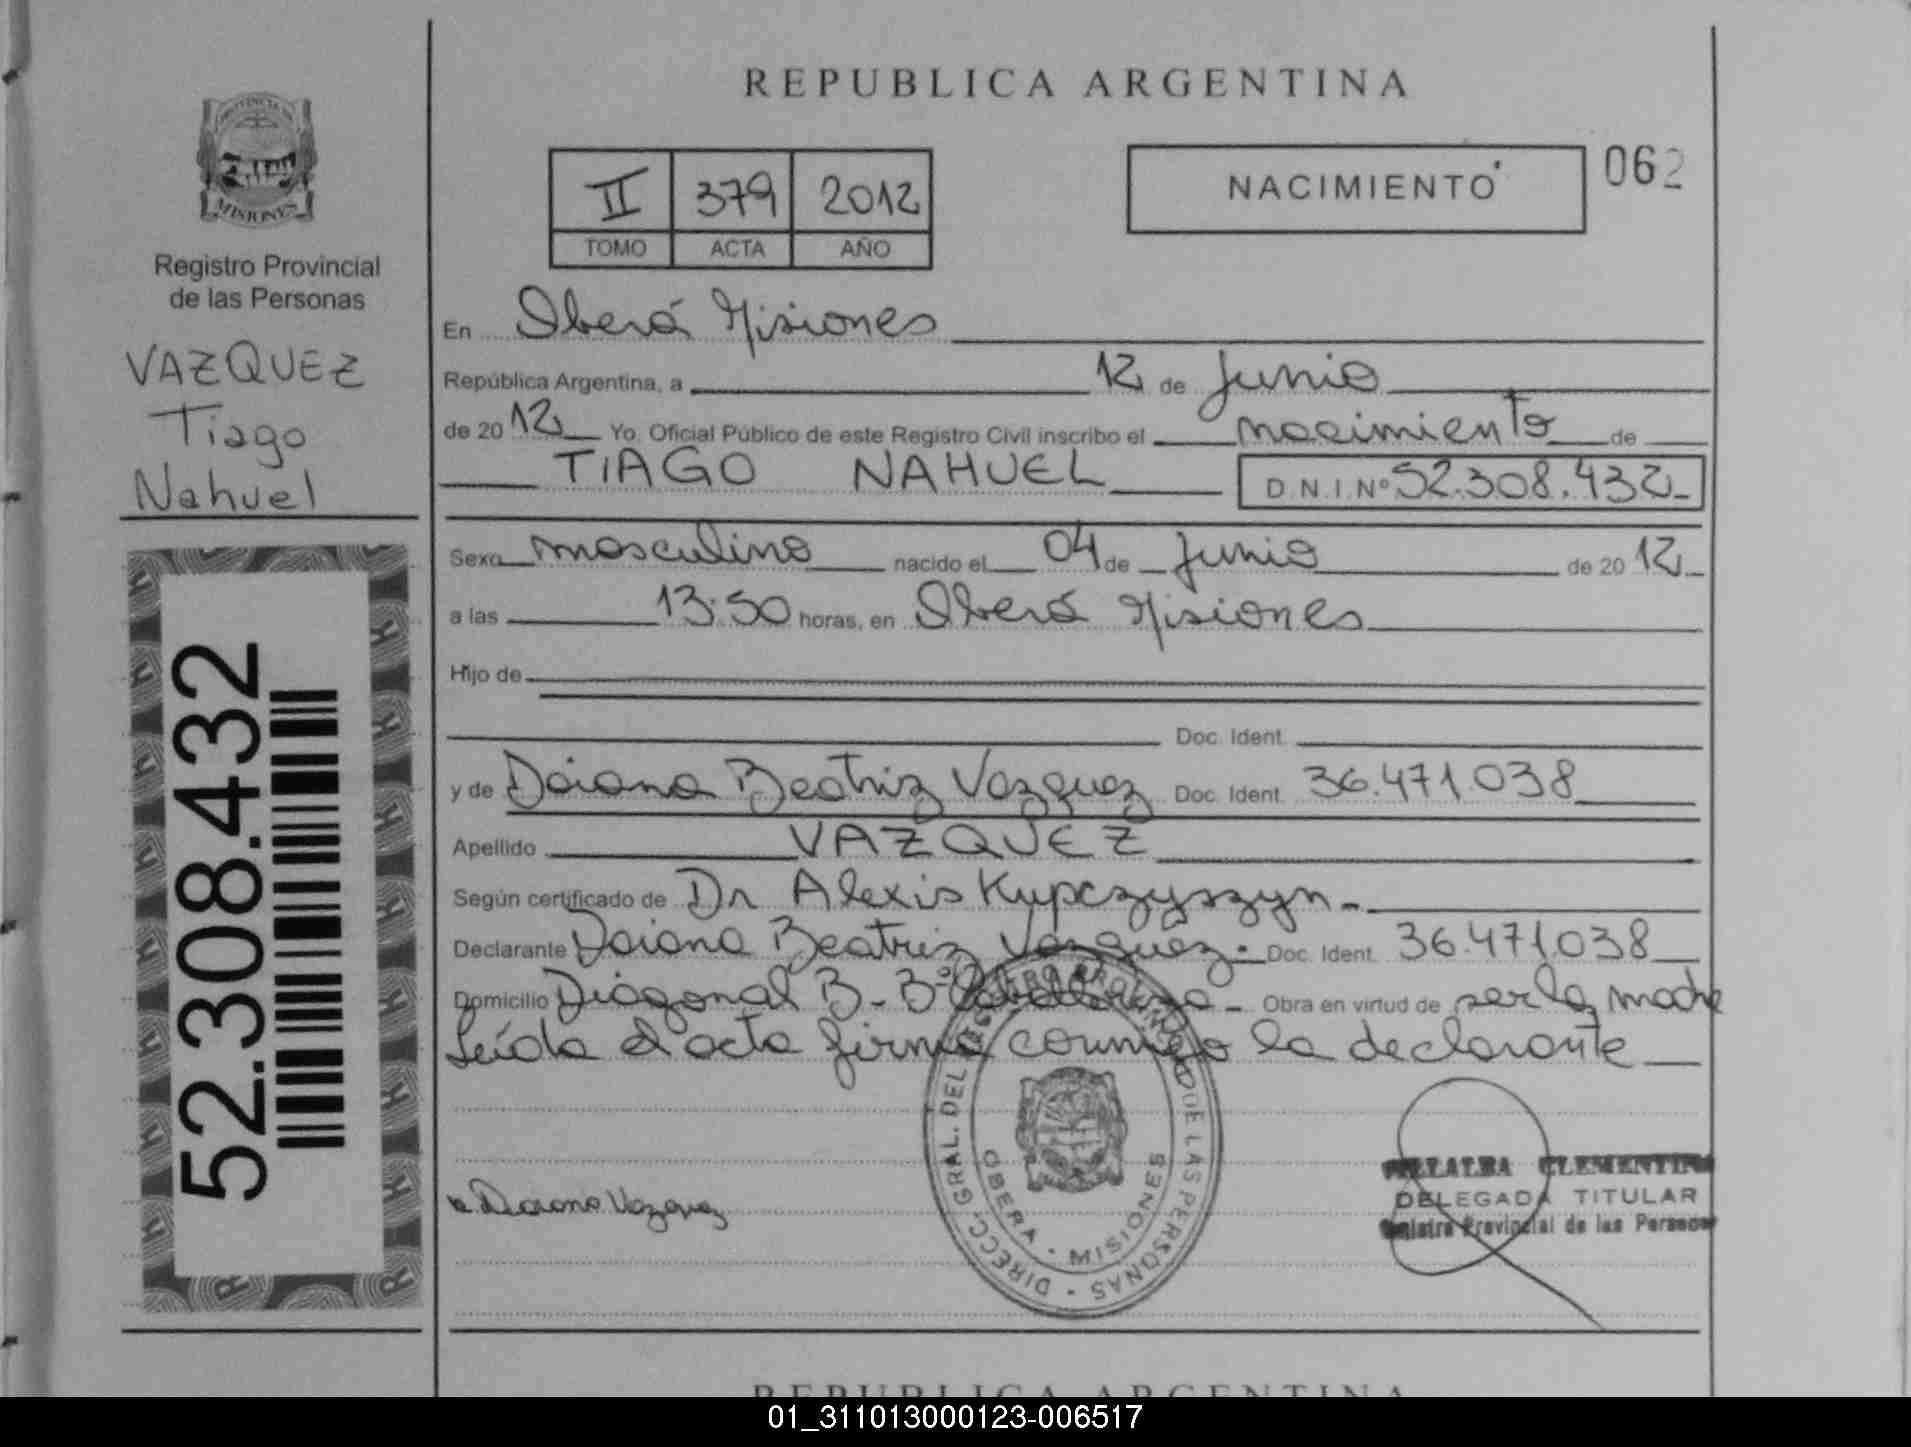 REPUBLICA ARGENTINA
PROVINCIA DE
MISIONES
Registro Provincial
de las Personas
VAZQUEZ
Tiago
Nahuel
52.308.432
II 379 2012
TOMO ACTA AÑO
NACIMIENTO
062
En Oberá Misiones
República Argentina, a 12 de Junio
de 2012 Yo, Oficial Público de este Registro Civil inscribo el nacimiento de
TIAGO NAHUEL D.N.I.Nº 52.308.432
Sexo masculino nacido el 04 de Junio de 2012
a las 13:50 horas, en Oberá Misiones
Hijo de
Doc. Ident.
y de Daiana Beatriz Vazquez Doc. Ident. 36.471.038
Apellido VAZQUEZ
Según certificado de Dr Alexis Kupczyszyn.-
Declarante Daiana Beatriz Vazquez.- Doc. Ident. 36.471.038
Domicilio Diagonal B - Bº - Obra en virtud de ser la madre
Leída el acta firma conmigo la declarante
Daiana Vazquez
DIRECC. GRAL. DEL REGISTRO PROVINCIAL DE LAS PERSONAS
OBERA - MISIONES
VILLALBA CLEMENTINA
DELEGADA TITULAR
Registro Provincial de las Personas
REPUBLICA ARGENTINA
01_311013000123-006517